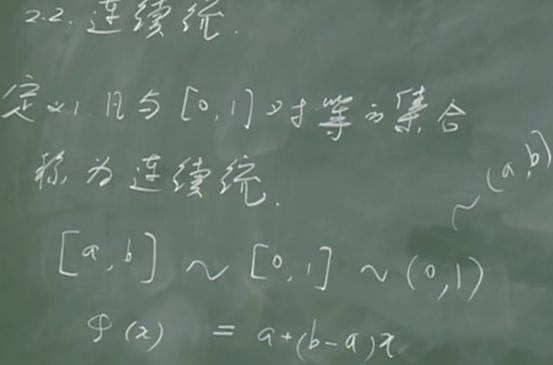 2.2. 连续统.
定义1. 凡与 [0,1] 对等的集合
称为连续统.
[a,b] ~ [0,1] ~ (0,1) ~ (a,b)
φ(x) = a+(b-a)x